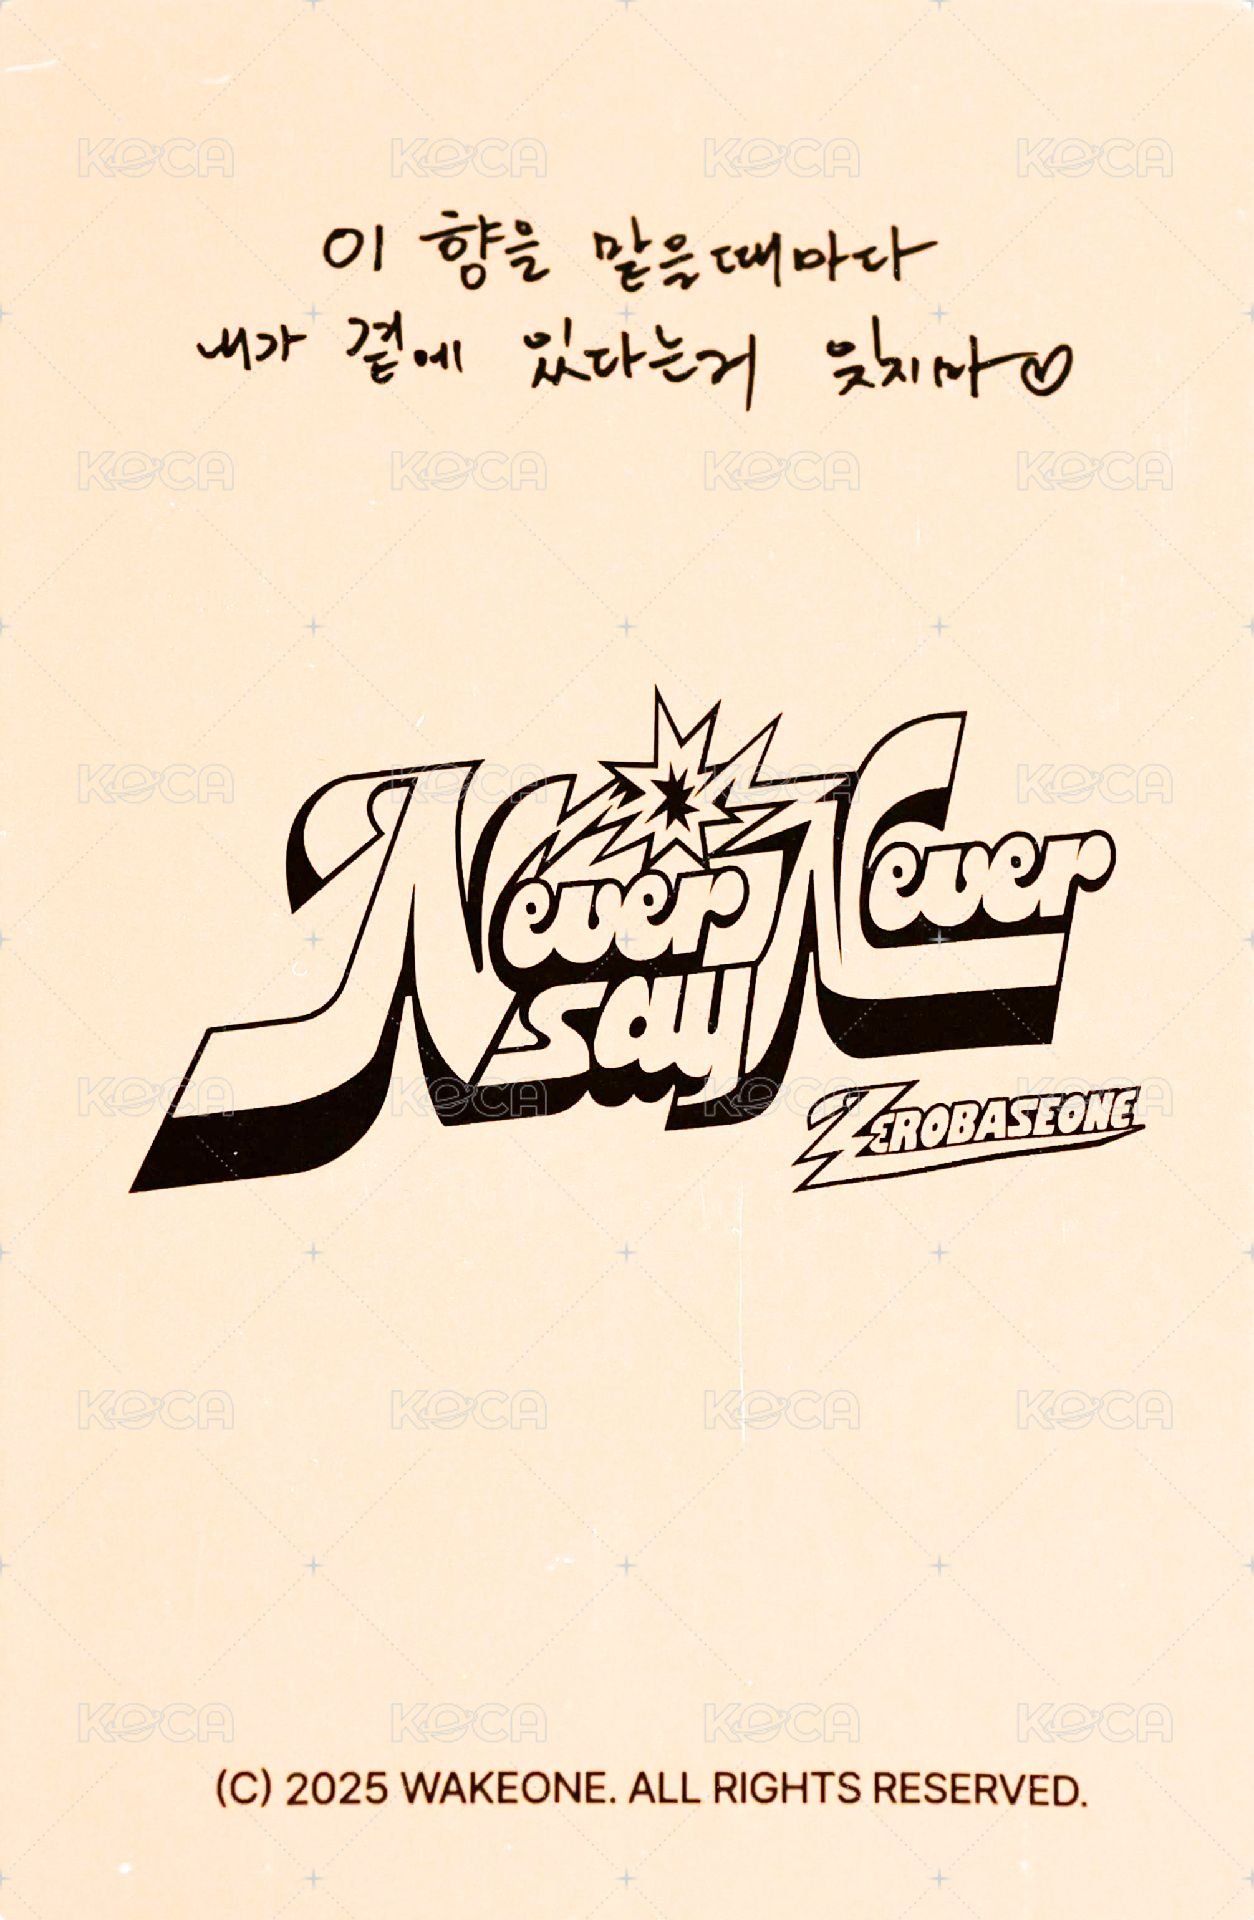 이 향을 맡을때마다
내가 곁에 있다는거 잊지마♡
Never say Never
ZEROBASEONE
(C) 2025 WAKEONE. ALL RIGHTS RESERVED.
KOCA KOCA KOCA KOCA
KOCA KOCA KOCA KOCA
KOCA KOCA KOCA KOCA
KOCA KOCA KOCA KOCA
KOCA KOCA KOCA KOCA
KOCA KOCA KOCA KOCA